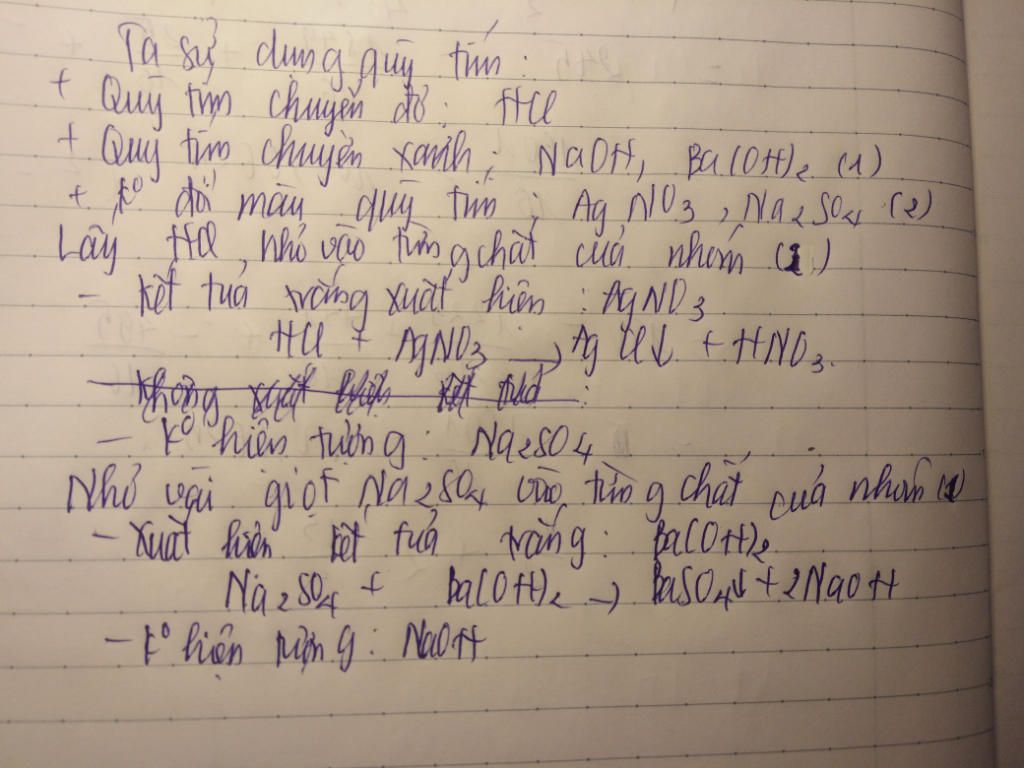 Ta sử dụng quỳ tím:
+ Quỳ tím chuyển đỏ: HCl
+ Quỳ tím chuyển xanh: NaOH, Ba(OH)₂ (1)
+ K⁰ đổi màu quỳ tím: AgNO₃, Na₂SO₄ (2)
Lấy HCl, nhỏ vào từng chất của nhóm (1)
- Kết tủa trắng xuất hiện: AgNO₃
HCl + AgNO₃ → AgCl↓ + HNO₃.
Không xuất hiện kết tủa:
- K⁰ hiện tượng: Na₂SO₄
Nhỏ vài giọt Na₂SO₄ vào từng chất của nhóm (1)
- Xuất hiện kết tủa trắng: Ba(OH)₂
Na₂SO₄ + Ba(OH)₂ → BaSO₄↓ + 2NaOH
- K⁰ hiện tượng: NaOH